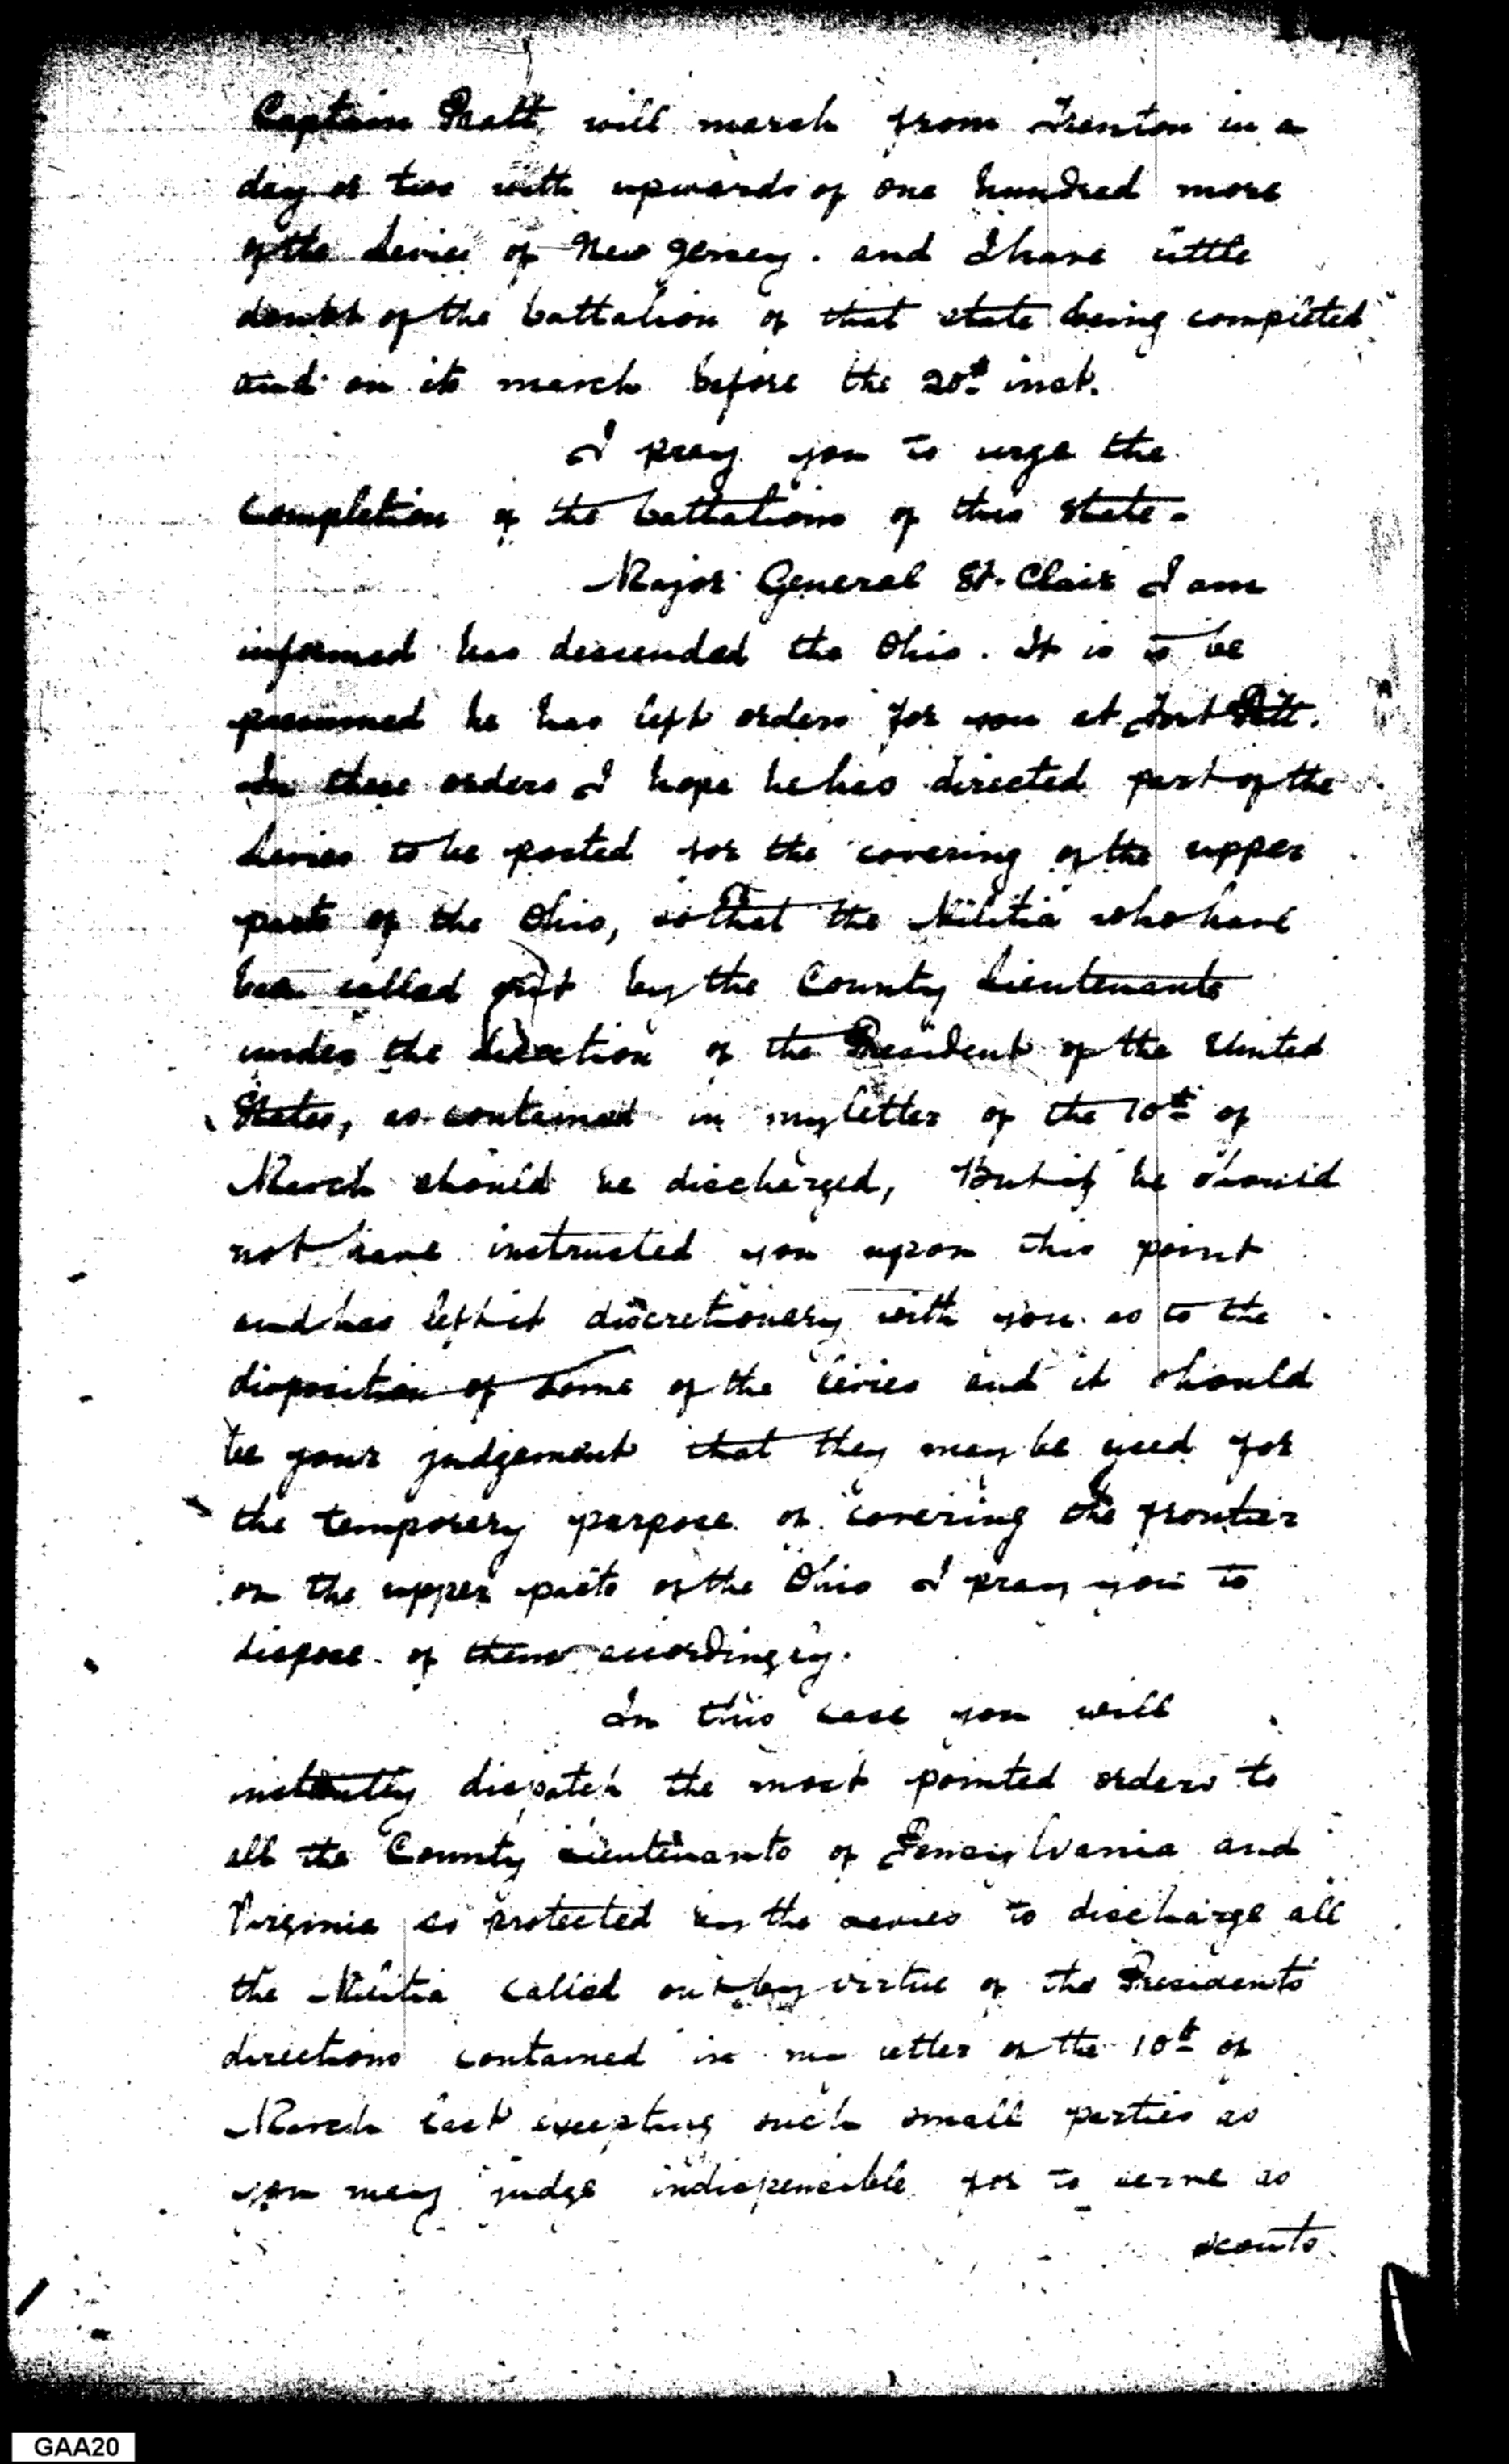 Captain Pratt, will march from Trenton in a
day or two with upwards of one hundred more
of the Levies of New Jersey. and I have little
doubt of the battalion of that state being completed
and on its march before the 20th inst.
I pray you to urge the
Completion of the battalions of this State -
Major General St. Clair I am
informed has descended the Ohio. It is to be
presumed he has left orders for you at Fort Pitt.
In these orders I hope he has directed part of the
Levies to be posted for the covering of the upper
parts of the Ohio, so that the Militia who have
been called out by the County Lieutenants
under the direction of the President of the United
States, as contained in my letter of the 10th of
March should be discharged, But if he should
not have instructed you upon this point
and has left it discretionary with you as to the
disposition of some of the levies and it should
be your judgement that they may be used for
the temporary purpose of covering the frontier
on the upper parts of the Ohio I pray you to
dispose of them accordingly.
In this case you will
instantly dispatch the most pointed orders to
all the County Lieutenants of Pensylvania and
Virginia as protected by the levies to discharge all
the Militia called out by virtue of the Presidents
directions contained in my letter of the 10th of
March last excepting such small parties as
you may judge indispensible for to serve as
scouts
GAA20